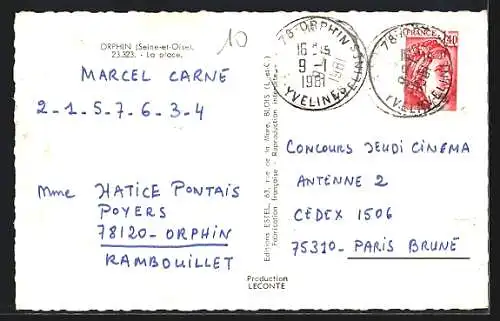 ORPHIN (Seine-et-Oise).
23.323. - La place.
10
MARCEL CARNE
2-1-5-7-6-3-4
Mme HATICE PONTAIS
POYERS
78120-ORPHIN
RAMBOUILLET
Editions ESTEL, 63, rue de la Mare, BLOIS (L.-et-C.)
Fabrication française - Reproduction interdite
Production
LECONTE
78-ORPHIN
16 H
9-1
1981
YVELINES
78-
YVELINES
FRANCE
1,40
CONCOURS JEUDI CINEMA
ANTENNE 2
CEDEX 1506
75310-PARIS BRUNE